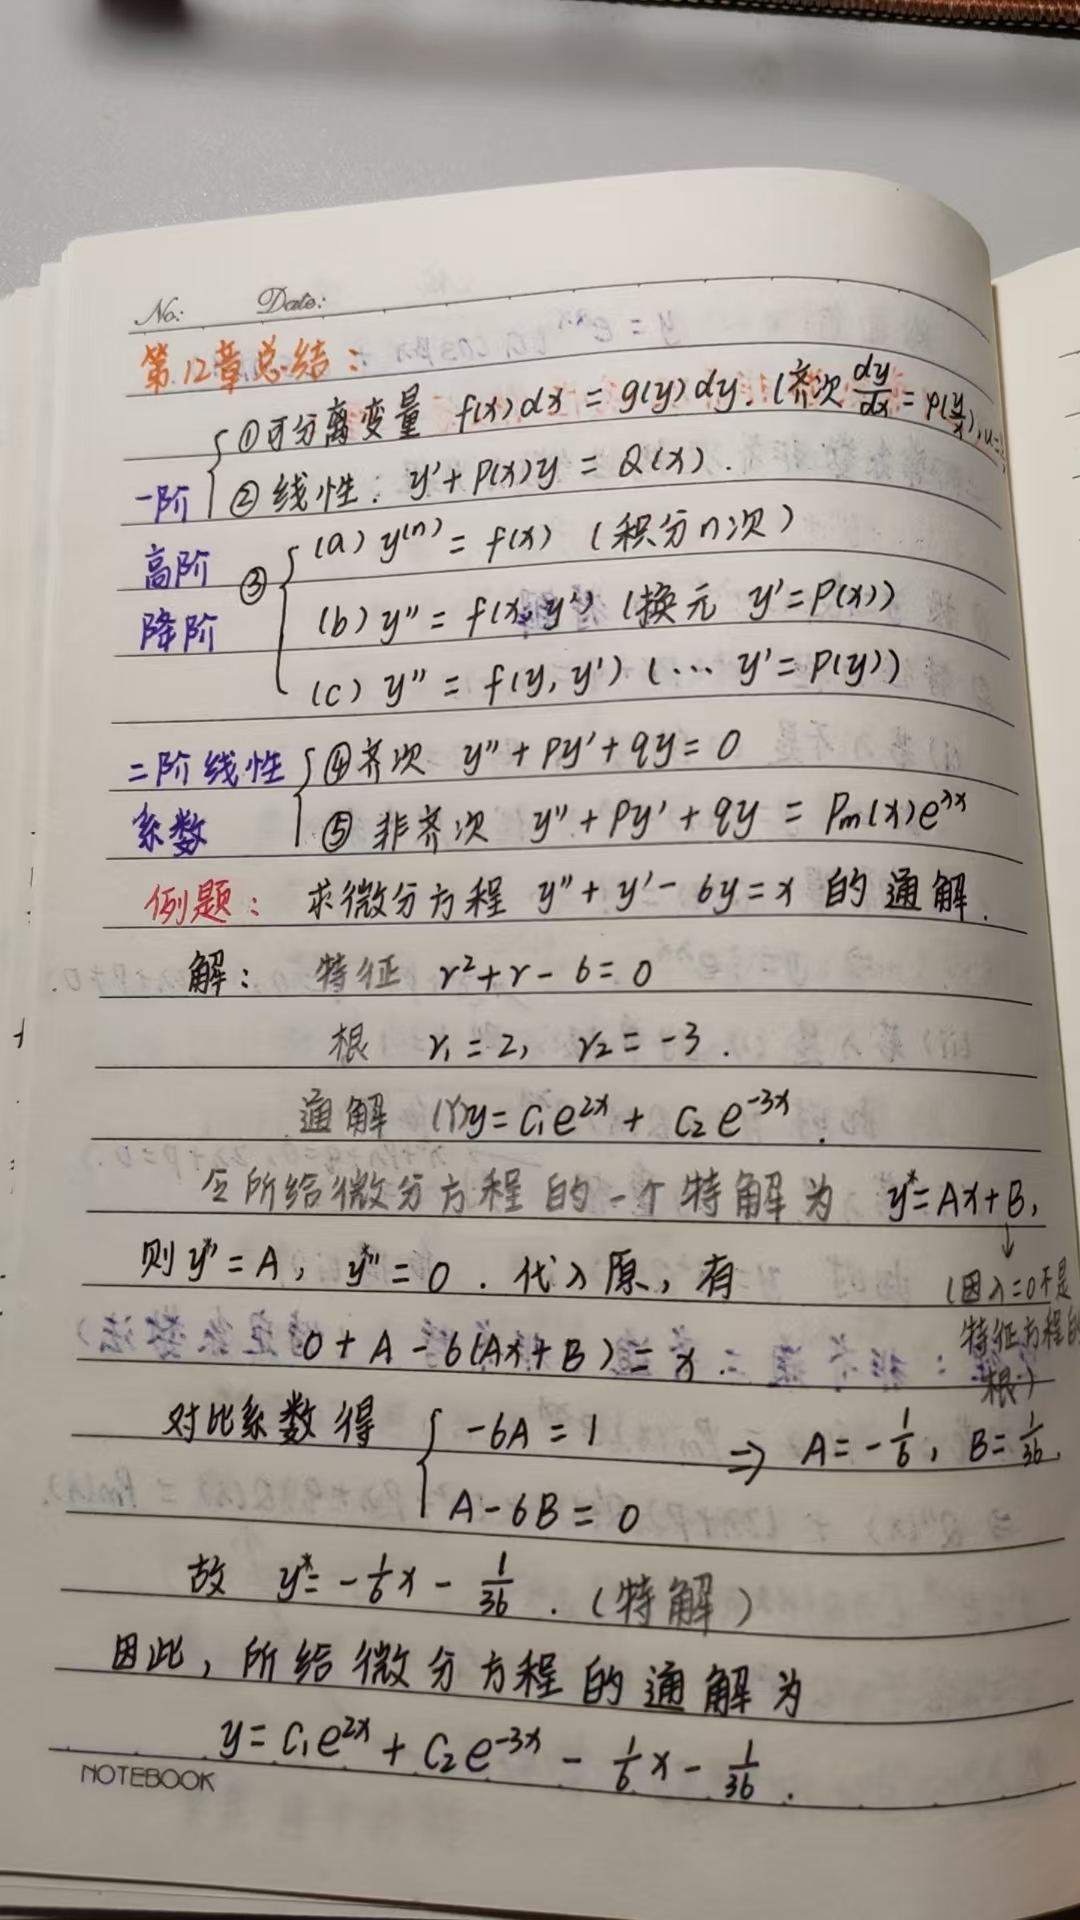 No: Date:
第12章总结:
①可分离变量 f(x)dx = g(y)dy. (齐次 dy/dx = φ(y/x), u=
一阶 ②线性: y'+P(x)y = Q(x).
高阶 ③ (a) y⁽ⁿ⁾ = f(x) (积分n次)
降阶 (b) y'' = f(x, y') (换元 y'=P(x))
(c) y'' = f(y, y') (… y'=P(y))
二阶线性 ④齐次 y''+py'+qy=0
系数 ⑤非齐次 y''+py'+qy = Pm(x)e^λx
例题: 求微分方程 y''+y'-6y=x 的通解.
解: 特征 r²+r-6=0
根 r₁=2, r₂=-3.
通解 (Y)y=C₁e^2x + C₂e^-3x.
令所给微分方程的一个特解为 y*=Ax+B,
↓
(因λ=0不是
特征方程的
根)
则 y*'=A, y*''=0. 代入原, 有
0+A-6(Ax+B)=x.
对比系数得 { -6A=1
A-6B=0
⇒ A=-1/6, B=-1/36.
故 y*=-1/6x-1/36. (特解)
因此, 所给微分方程的通解为
y=C₁e^2x+C₂e^-3x-1/6x-1/36.
NOTEBOOK